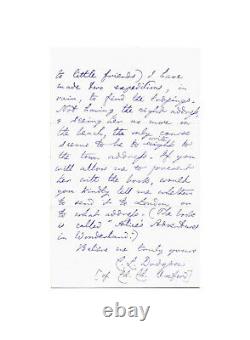 to little friends) I have
made two expeditions, in
vain, to find the lodgings.
Not having the right address,
& seeing her no more on
the beach, the only course
seems to be to write to
the town address. If you
will allow me to present
her with the book, would
you kindly tell me whether
to send it to London, or
to what address. (The book
is called "Alice's Adventures
in Wonderland.")
Believe me truly yours
C. L. Dodgson
[of Ch. Ch. Oxford]
ebay